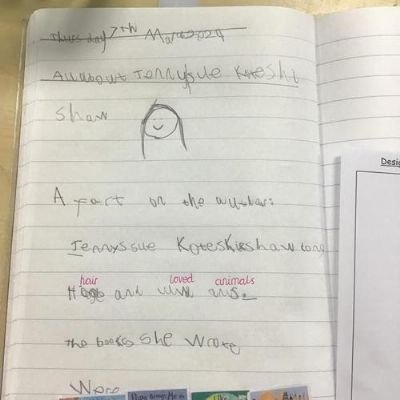 Thursday 7th March 2024
All about Jennysue Kotesht
Shaw
A fact on the author:
Jennysue Koteskishaw long
hair loved animals
and
the books She wrote
Were
Desig